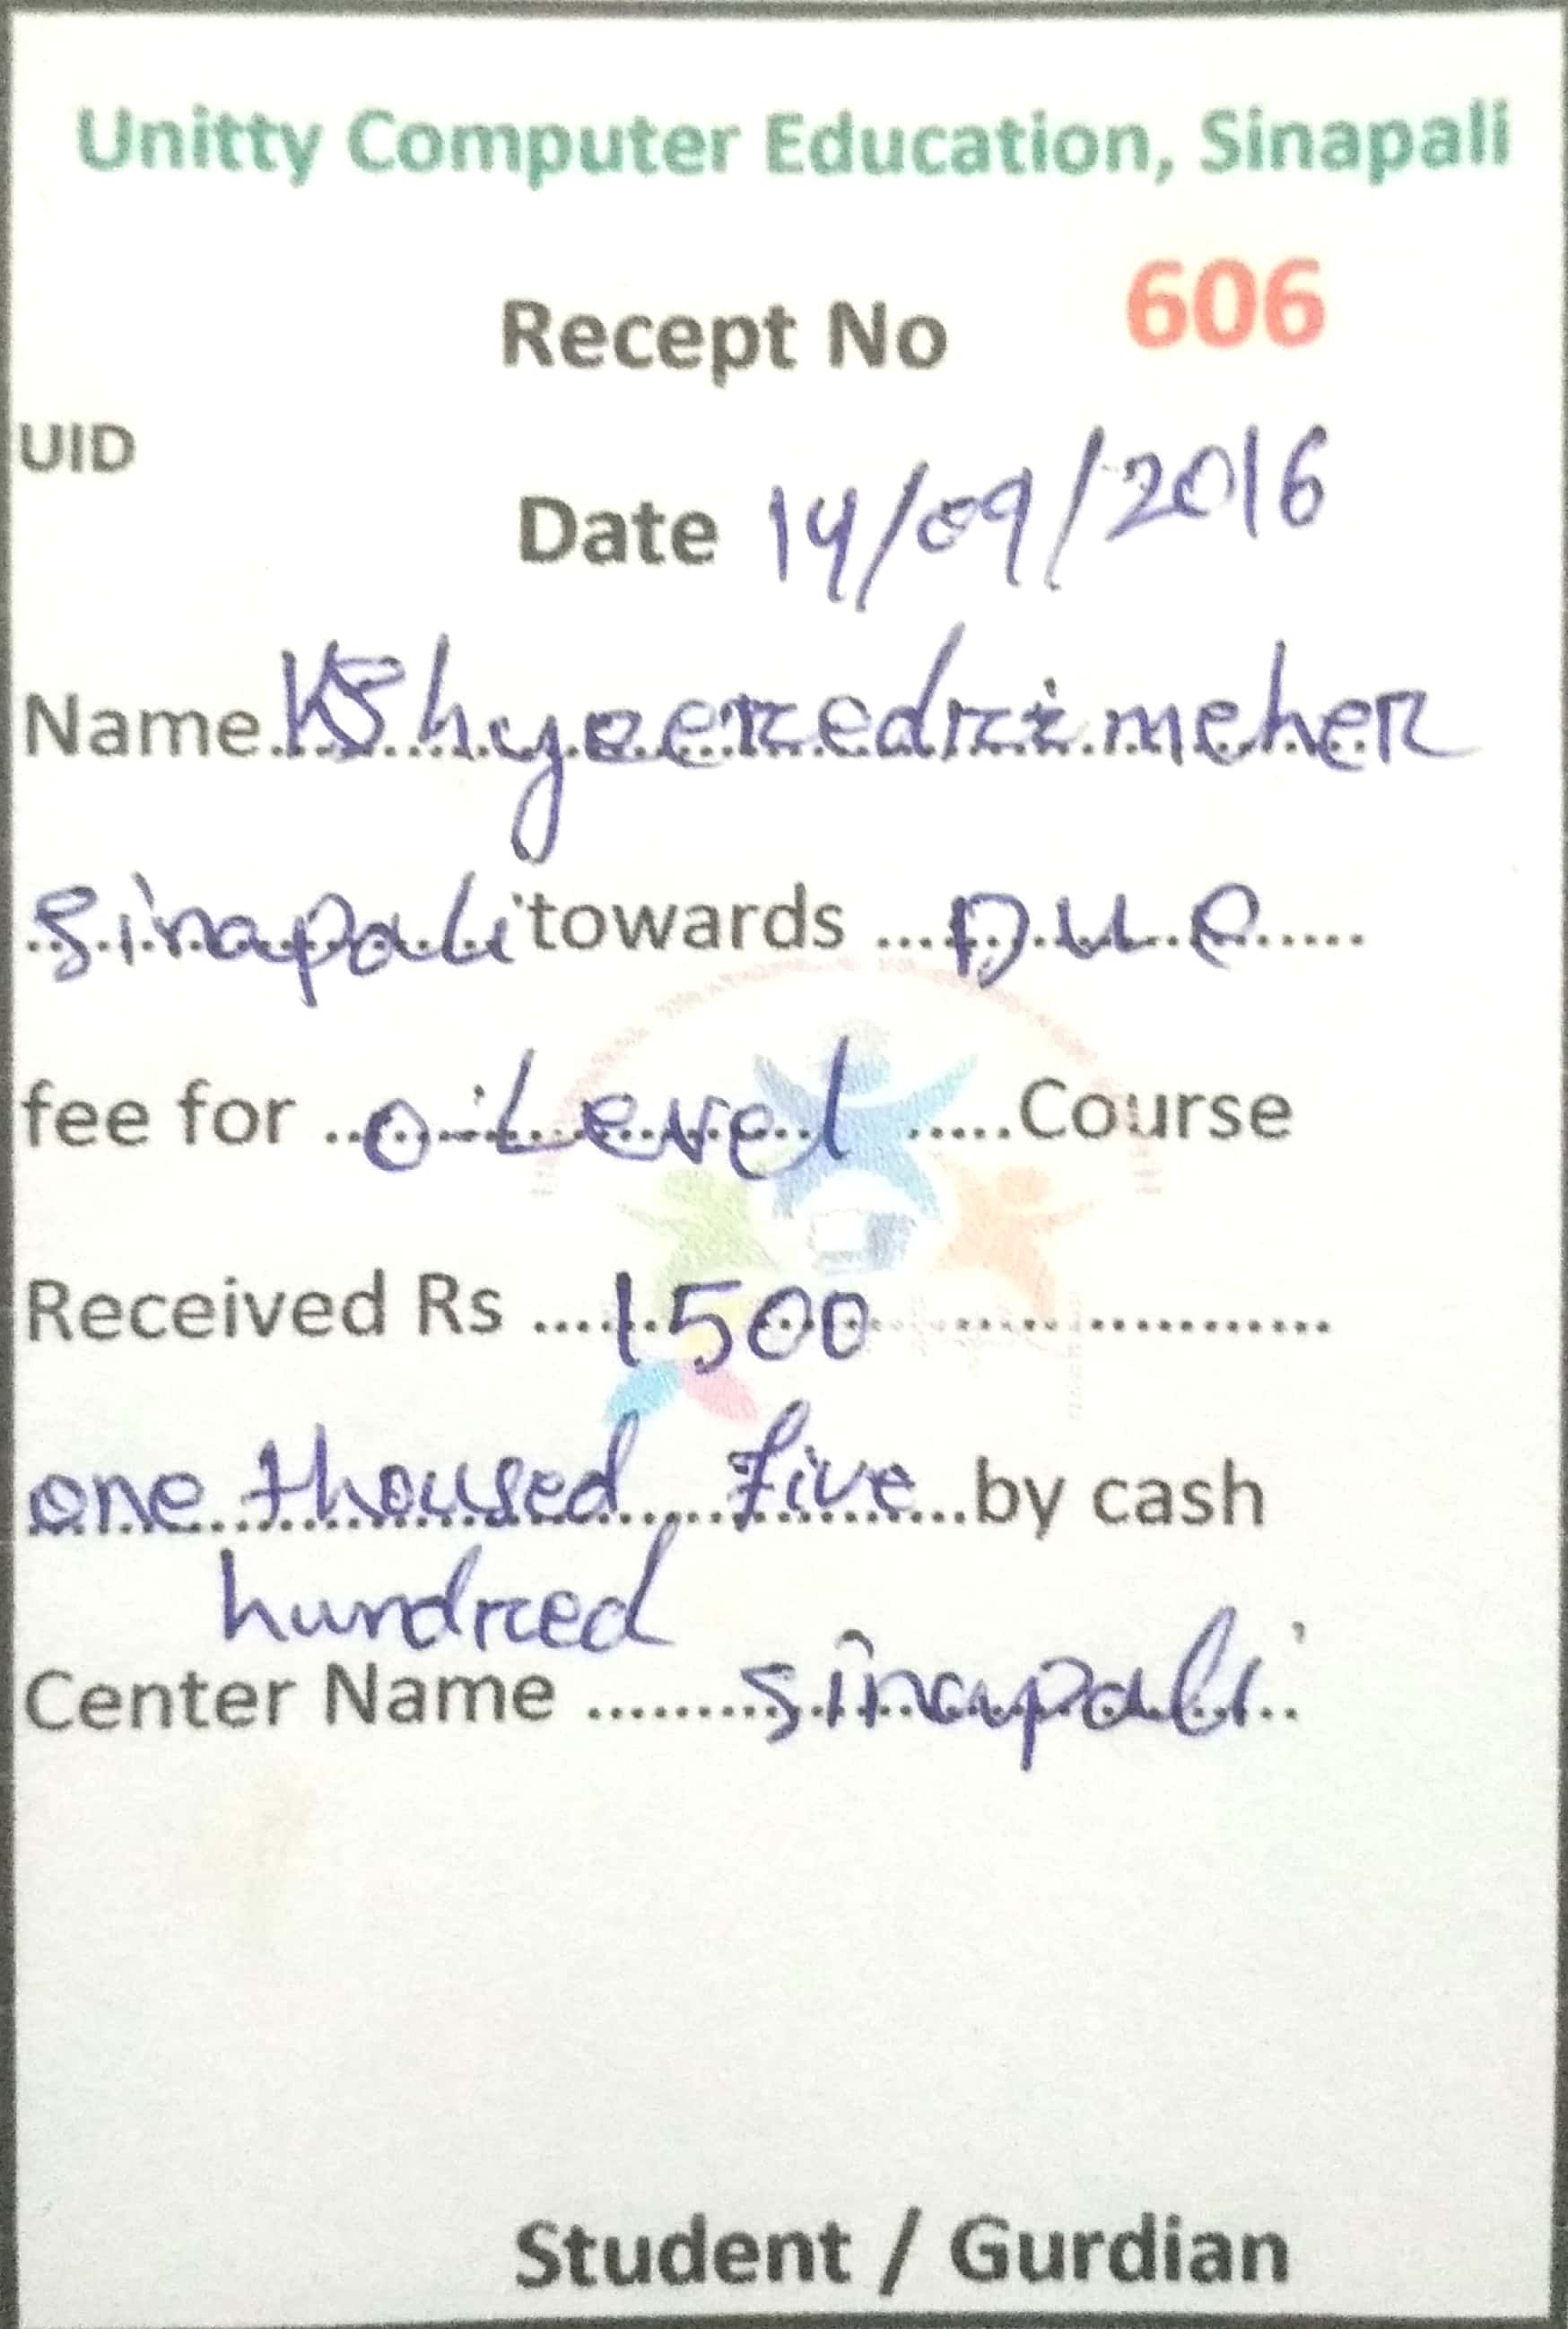 Unitty Computer Education, Sinapali
Recept No 606
UID
Date 14/09/2016
Name meher
Sinapali towards Due
fee for O-Level Course
Received Rs 1500
one thoused five by cash
hundred
Center Name Sinapali
Student / Gurdian